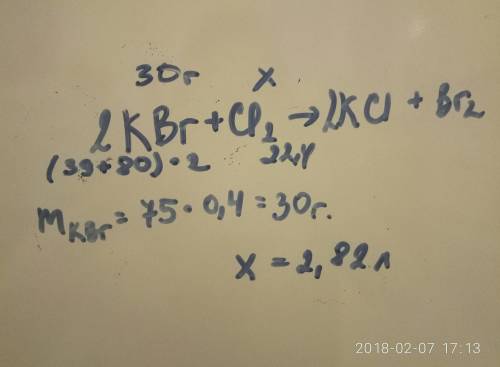 30г x
2KBr + Cl₂ → 2KCl + Br₂
(39+80)·2 22,4
mKBr = 75·0,4 = 30г.
x = 2,82 л
2018-02-07 17:13